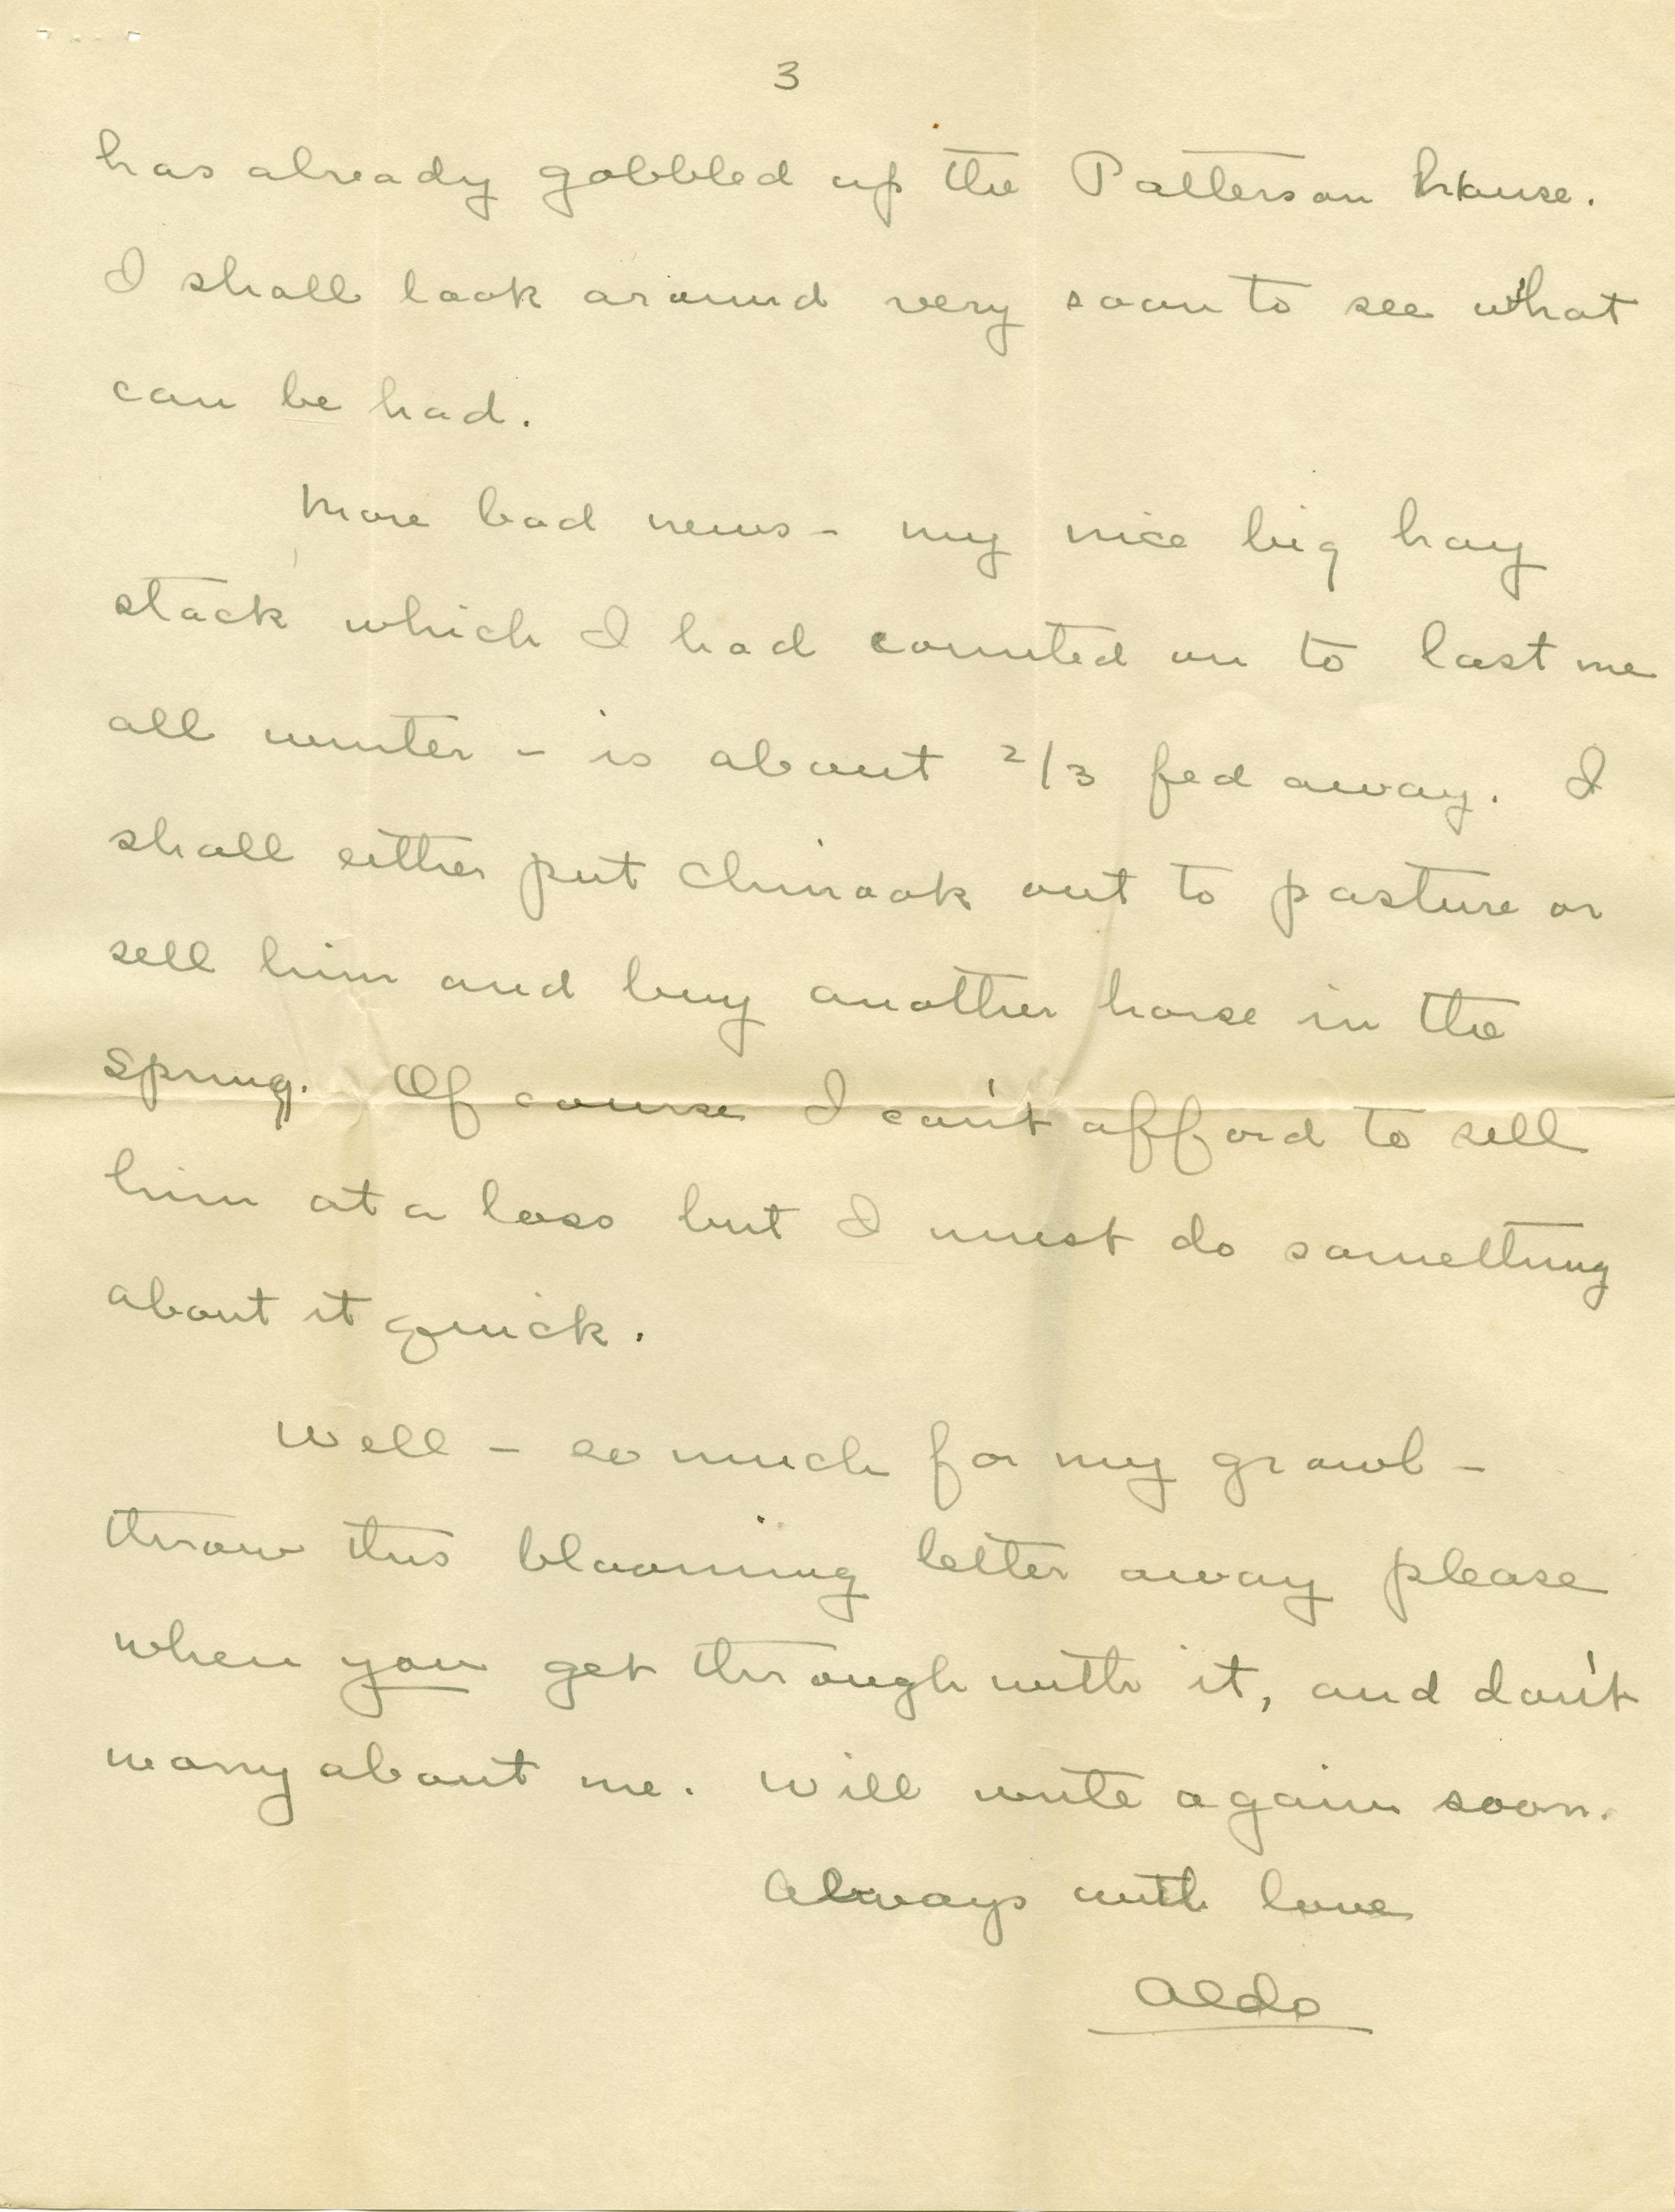 3
has already gobbled up the Patterson house.
I shall look around very soon to see what
can be had.
More bad news - my nice big hay
stack which I had counted on to last me
all winter - is about 2/3 fed away. I
shall either put Chinook out to pasture or
sell him and buy another horse in the
spring. Of course I can't afford to sell
him at a loss but I must do something
about it quick.
Well - so much for my growl -
throw this blooming letter away please
when you get through with it, and don't
worry about me. Will write again soon.
Always with love
Aldo